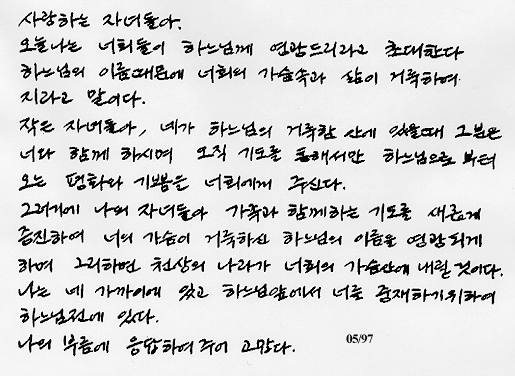 사랑하는 자녀들아.
오늘 나는 너희들이 하느님께 영광드리라고 초대한다
하느님의 이름때문에 너희의 가슴속과 삶이 거룩하여
지라고 말이다.
작은 자녀들아, 네가 하느님의 거룩함 산에 있을때 그분은
너와 함께 하시며 오직 기도를 통해서만 하느님으로 부터
오는 평화와 기쁨을 너희에게 주신다.
그러기에 나의 자녀들아 가족과 함께하는 기도를 새롭게
증진하여 너의 가슴이 거룩하신 하느님의 이름을 영광되게
하며 그리하면 천상의 나라가 너희의 가슴안에 내릴 것이다.
나는 네 가까이에 있고 하느님앞에서 너를 중재하기위하여
하느님전에 있다.
나의 부름에 응답하여 주어 고맙다.
05/97